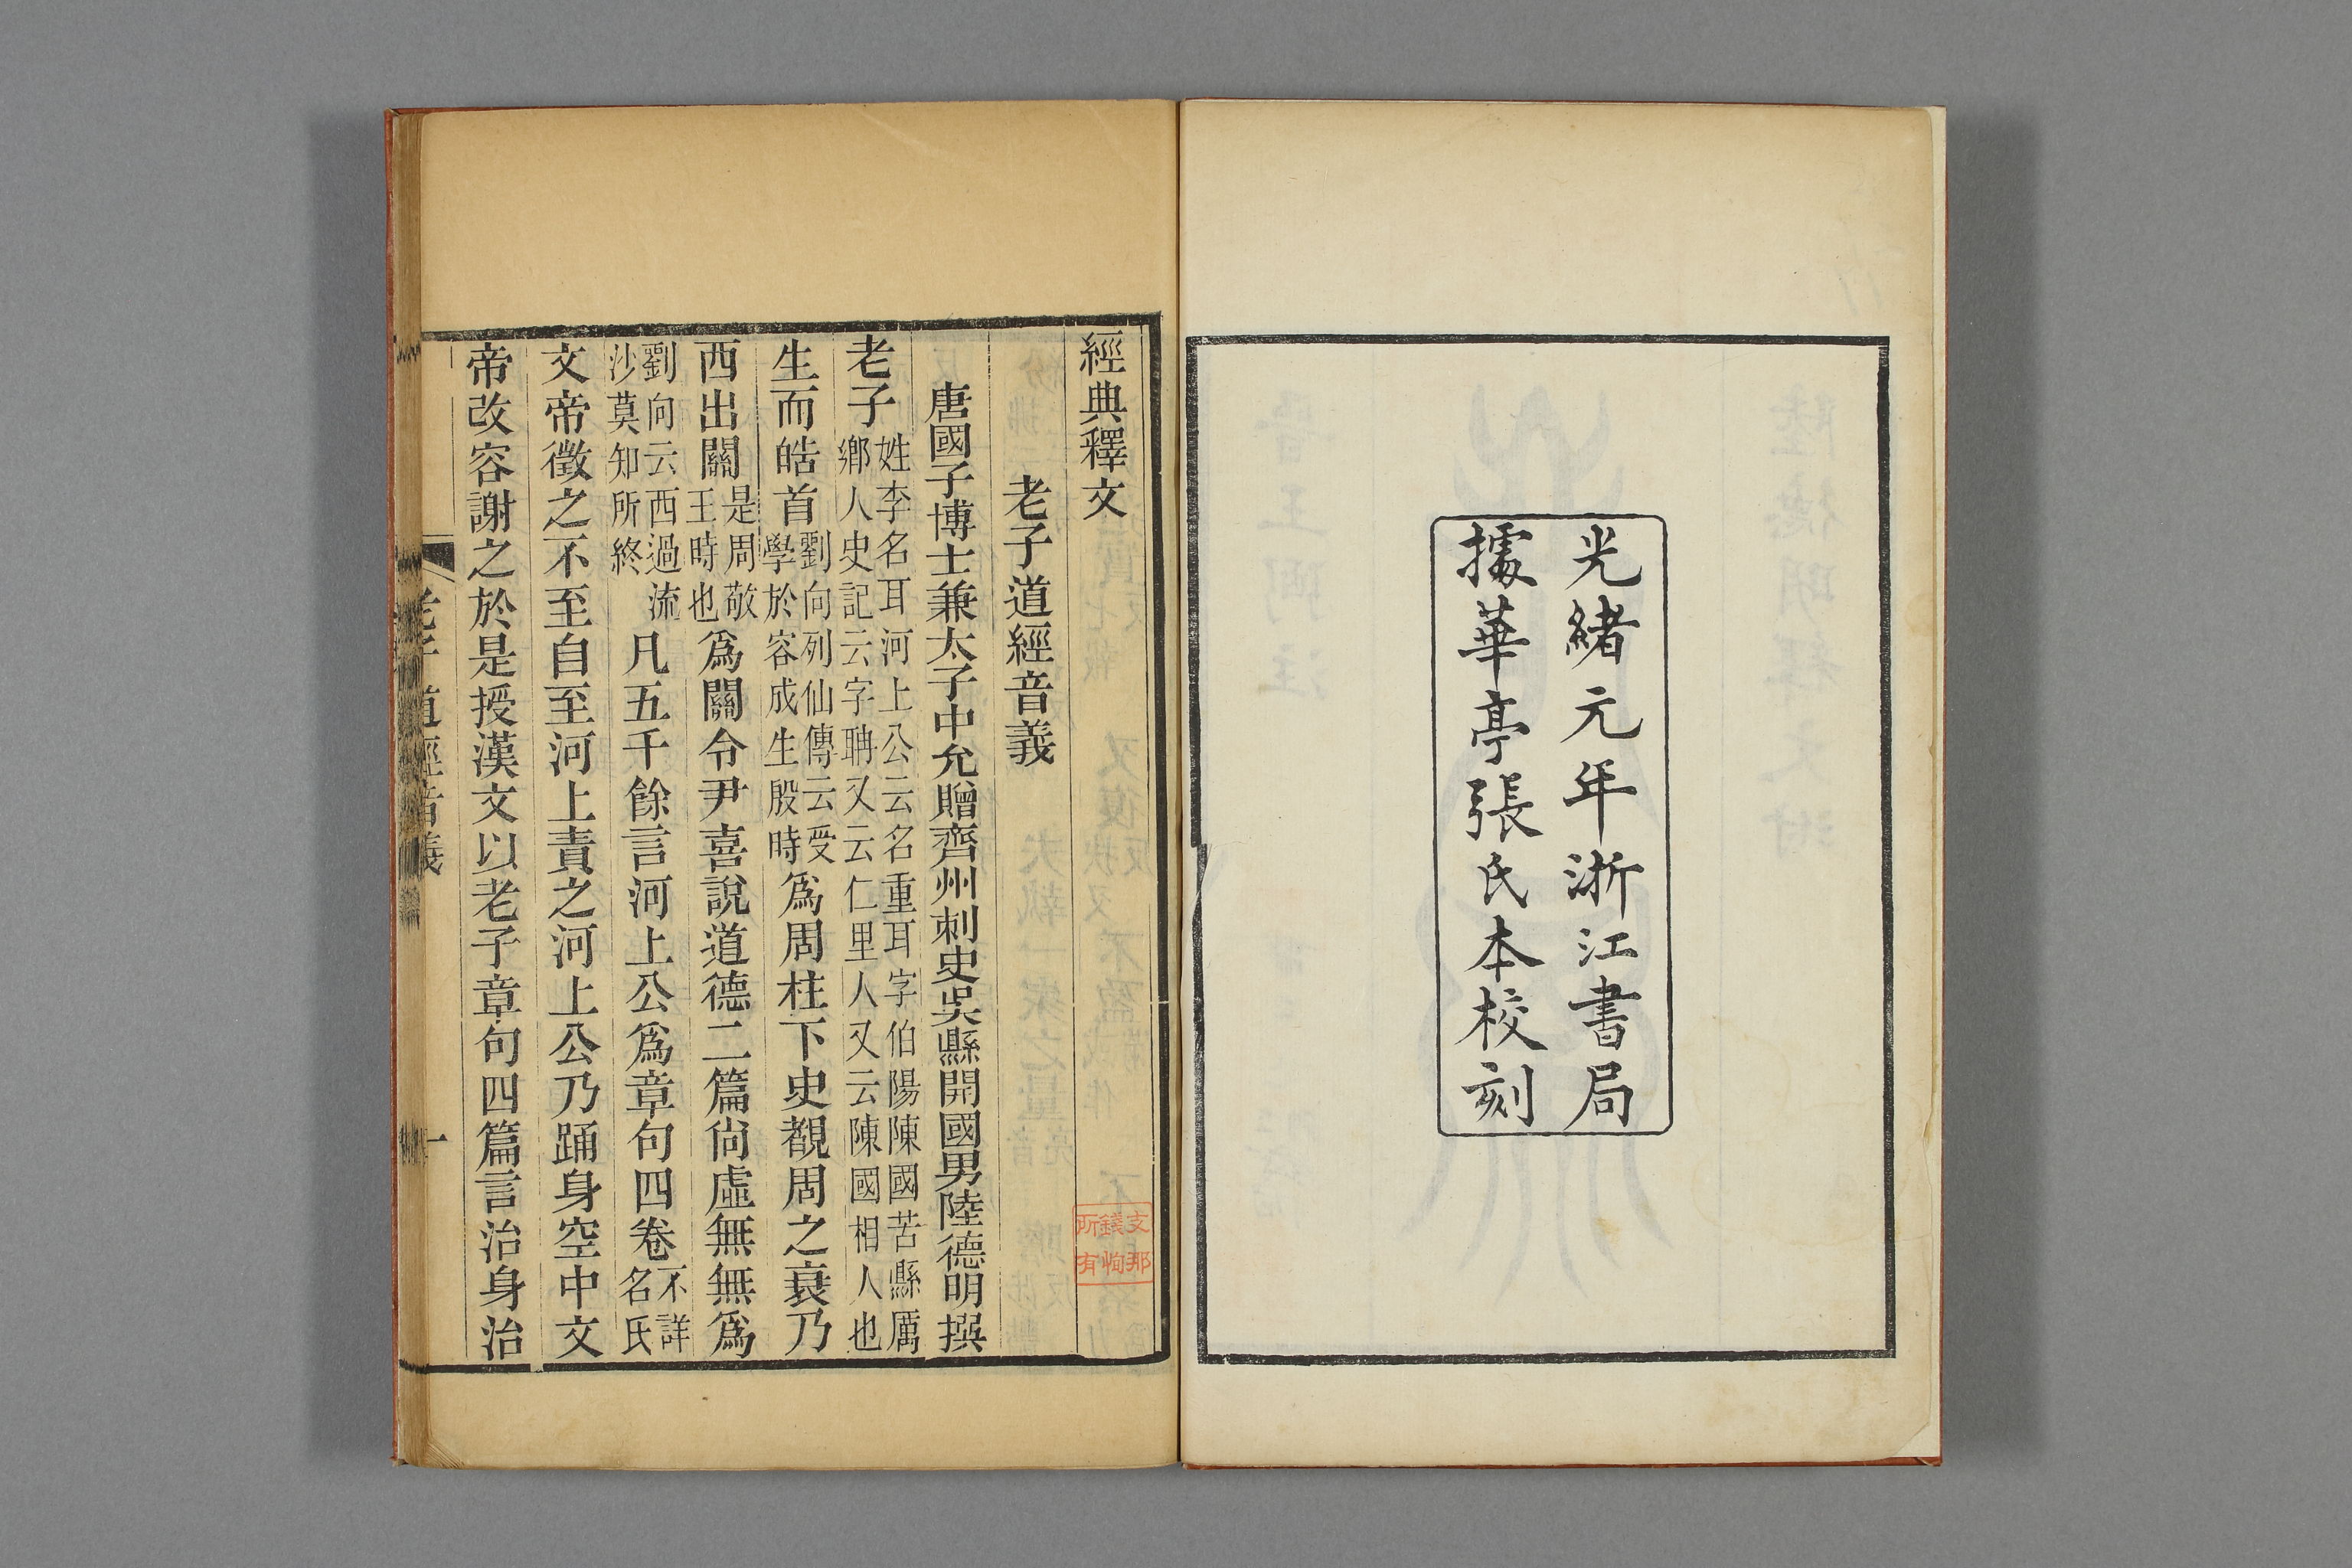 光緒元年浙江書局
據華亭張氏本校刻
經典釋文
老子道經音義
唐國子博士兼太子中允贈齊州刺史吳縣開國男陸德明撰
老子
姓李名耳河上公云名重耳字伯陽陳國苦縣厲
鄉人史記云字聃又云仁里人又云陳國相人也
生而皓首
劉向列仙傳云受
學於容成生殷時
爲周柱下史覩周之衰乃
西出關
是周敬
王時也
爲關令尹喜說道德二篇尚虛無無爲
劉向云西過流
沙莫知所終
凡五千餘言河上公爲章句四卷
不詳
名氏
文帝徵之不至自至河上責之河上公乃踊身空中文
帝改容謝之於是授漢文以老子章句四篇言治身治
老子道經音義
一
支那
錢恂
所有